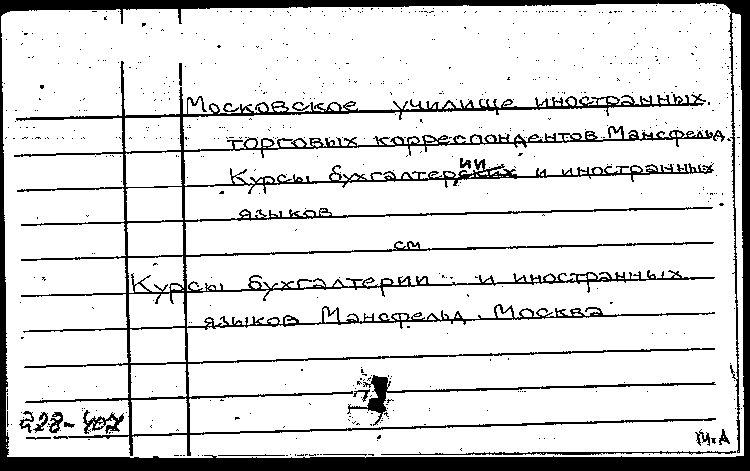 Московское училище иностранных
торговых корреспондентов Мансфельд.
Курсы бухгалтерии и иностранных
языков
см
Курсы бухгалтерии и иностранных
языков Мансфельд. Москва
228-407
М.А